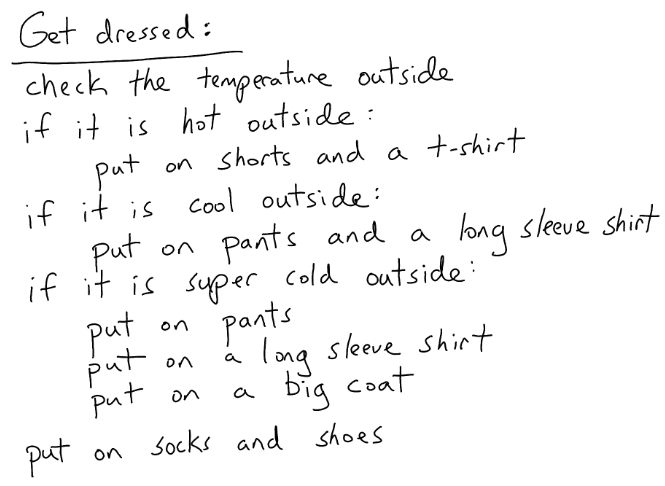 Get dressed:
check the temperature outside
if it is hot outside:
put on shorts and a t-shirt
if it is cool outside:
put on pants and a long sleeve shirt
if it is super cold outside:
put on pants
put on a long sleeve shirt
put on a big coat
put on socks and shoes